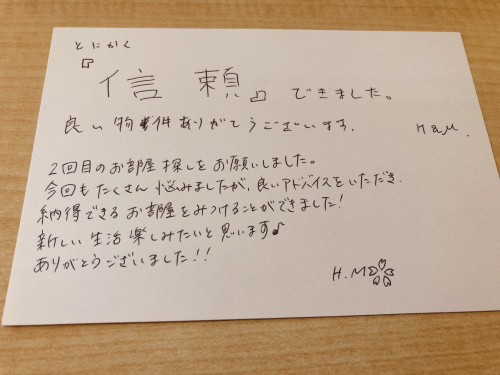 とにかく
『信頼』できました。
良い物件ありがとうございます.
H&M.
2回目のお部屋探しをお願いしました。
今回もたくさん悩みましたが、良いアドバイスをいただき、
納得できるお部屋をみつけることができました!
新しい生活楽しみたいと思います♪
ありがとうございました!!
H.M